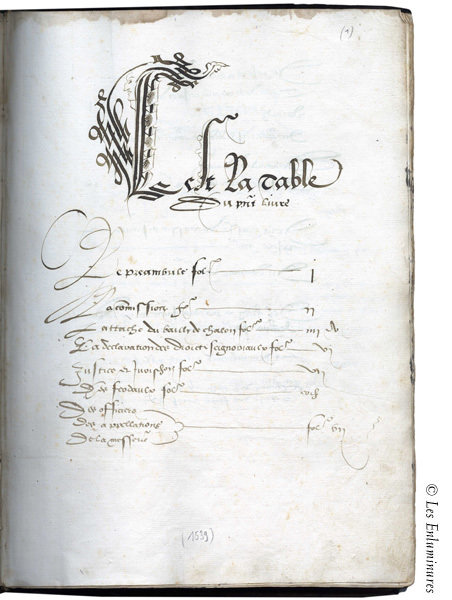 (1)
C'est La Table
Du pñt livre
Le preambule fol. j
La comission fol. ii
Lattache du bailli de chalon fol. iiii
La declaration des droictz seignoriaulx fol. vi
Justice et Jurisdion fol. vii
fiefz feodaulx fol.
Des officiers
Des appellations fol. vii
De la messerie
(1539)
© Les Enluminures